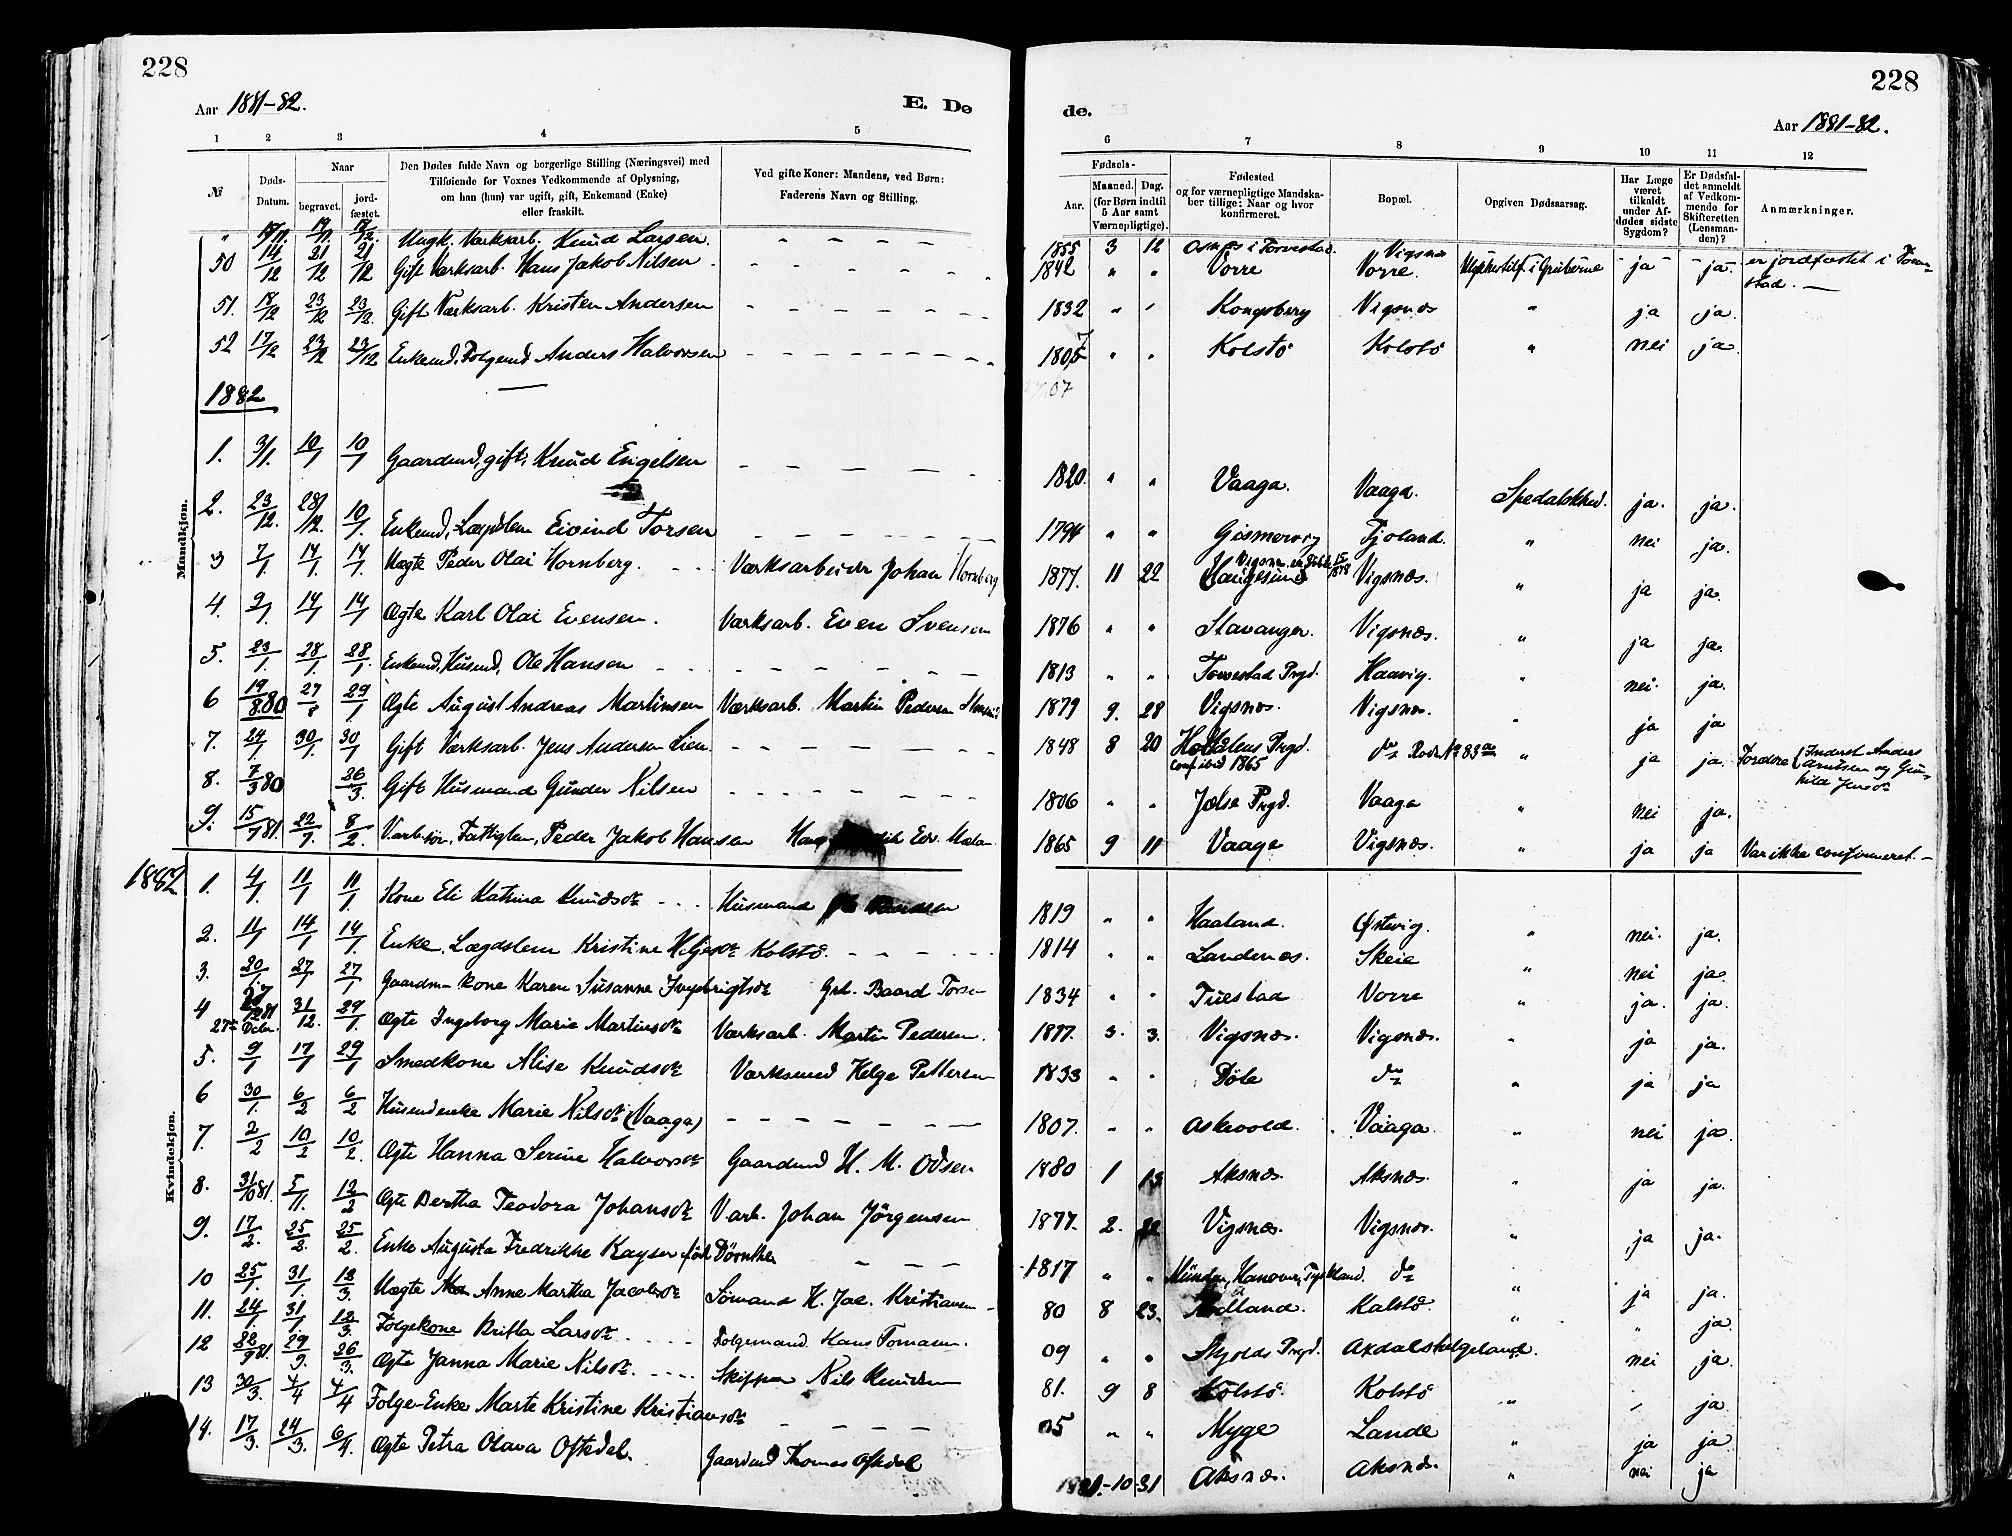 228
228
Aar 1881-82.
E. De
de.
Aar 1881-82.
1 2 3 4 5 6 7 8 9 10 11 12
№
Døds-Datum.
Naar
begravet.
jord-fæstet.
Den Dødes fulde Navn og borgerlige Stilling (Næringsvei) med
Tilføiende for Voxnes Vedkommende af Oplysning,
om han (hun) var ugift, gift, Enkemand (Enke)
eller fraskilt.
Ved gifte Koner: Mandens, ved Børn:
Faderens Navn og Stilling.
Fødsels-
Aar.
Maaned.
Dag.
(for Børn indtil
5 Aar samt
Værnepligtige).
Fødested
og for værnepligtige Mandska-
ber tillige: Naar og hvor
konfirmeret.
Bopæl.
Opgiven Dødsaarsag.
Har Læge
været
tilkaldt
under Af-
dødes sidste
Sygdom?
Er Dødsfal-
det anmeldt
af Vedkom-
mende for
Skifteretten
(Lensman-
den)?
Anmærkninger.
" Ungk. Værksarb. Knud Larsen. 1855 3 12 i Torvestad Vigsnæs
50 14/12 21/12 21/12 Gift Værksarb. Hans Jakob Nilsen 1842 " " Vorre Vorre. Ulykkestilf. i Gruberne ja ja. er jordfæstet i Torve-
stad.
51. 18/12 23/12 23/12. Gift Værksarb. Kristen Andersen 1832 " " Kongsberg Vigsnæs " ja ja.
52 17/12 23/12 23/12 Enkemd. Folgemd Anders Halvorsen " " Kolstø Kolstø " nei ja.
07
1882
Mandkjøn.
1. 3/1. 10/1 10/1 Gaardmd, gift, Knud Engelsen 1820. " " Vaaga. Vaaga. Spedalskhed. ja. ja.
2. 23/12. 28/12. 10/1. Enkemd, Lægdslem Eivind Torsen 1794 " " Gismervig Fjoland. " nei ja.
3 7/1. 14/1. 14/1. Uægte Peder Olai Hornberg. Værksarbeider Johan Hornberg 1877. 11 22 Haugesund Vigsnæs. " ja ja.
4. 2/1. 14/1 14/1 Ægte Karl Olai Evensen. Værksarb. Even Svensen 1876 " " Stavanger. Vigsnæs. " ja ja.
5. 23/1. 28/1. 28/1. Enkemd, Husmd, Ole Hansen 1813 " " Torvestad Prgd. Haavig. " nei. ja.
6 19/8 80 27/8 29/1 Ægte August Andreas Martinsen Værksarb. Martin Pedersen 1879 9. 28 Vigsnæs. Vigsnæs. " ja ja
7. 24/1 30/1. 30/1 Gift Værksarb. Jens Andersen Lien. 1848 8 20 Prgd. do " ja ja. Forældre Inderst Anders
conf ibid 1865
8. 7/3 80 26/3. Gift Husmand Gunder Nilsen 1806 " " Jelse Prgd. Vaaga " nei ja.
9. 15/7 81. 22/7. 8/2. Fattiglem, Peder Jakob Hansen 1865 9 11 Vaage Vigsnæs. " ja ja Var ikke confirmeret. -
1882
Kvindekjøn.
1. 4/1. 11/1 11/1. Kone Eli Katrina Knudsdr Husmand 1819 " " Haaland. Østvig. " nei. ja.
2. 11/1 14/1 14/1. Enke, Lægdslem Kristine Kolstø. 1814 " " Landenæs. Skeie " nei ja.
3. 20/1 27/1 27/1 Gaardm- kone Karen Susanne Grb. Baard Torsen 1834 " " Tuestad Vorre " ja. ja.
4 27de Decbr. 31/12. 29/1. Ægte Ingeborg Marie Martinsdr Værksarb. Martin Pedersen. 1877. 3. 3. Vigsnæs. Vigsnæs. " ja ja.
5. 9/1 17/1 29/1 Smedkone Alise Knudsdr Værksmed Helge Pettersen 1833 " " Døle do " ja ja
6 30/1. 6/2 6/2 Husmdenke Marie Nilsdr (Vaaga) 1807. " " Askvold. Vaaga. " nei ja.
7. 2/2 10/2 10/2. Ægte Hanna Serine Halvorsdr Gaardmd H. M. Odsen 1880 1 13 Aksnæs. Aksnæs. " ja ja.
8. 31/10 81. 5/11. 12/2 Ægte Bertha Teodora Johansdr Varb. Johan Jörgensen 1877. 2. 22 Vigsnæs. Vigsnæs. " ja ja.
9. 17/2. 25/2. 25/2. Enke Augusta Fredrikke Kayser født 1817 " " Münden, Hanover, Tyskland. do " ja ja.
10 25/1. 31/1. 12/3. Uægte Anne Martha Jacobsdr Sømand H. Jac. Kristiansen 80 8 23. Kalstø. " " ja
11. 24/1. 31/1. 12/3. Folgekone Britta Larsdr. Folgemand Hans Tomasen. 09 " " Prgd. nei ja.
12 22/9 81. 29/9. 26/3. Ægte Janna Marie Nilsdr. Skipper Nils Knudsen 81. 9 8 Kolstø. Kolstø " ja.
13 30/3. 4/4 4/4 Folge-Enke Marte Kristine Kristiansdr 05 " " Myge Lande " ja ja
14. 17/3. 24/3. 6/4. Ægte Petra Olava Oftedal. Gaardmd Thomas Oftedal 10 31 Aksnæs. Aksnæs. " nei ja